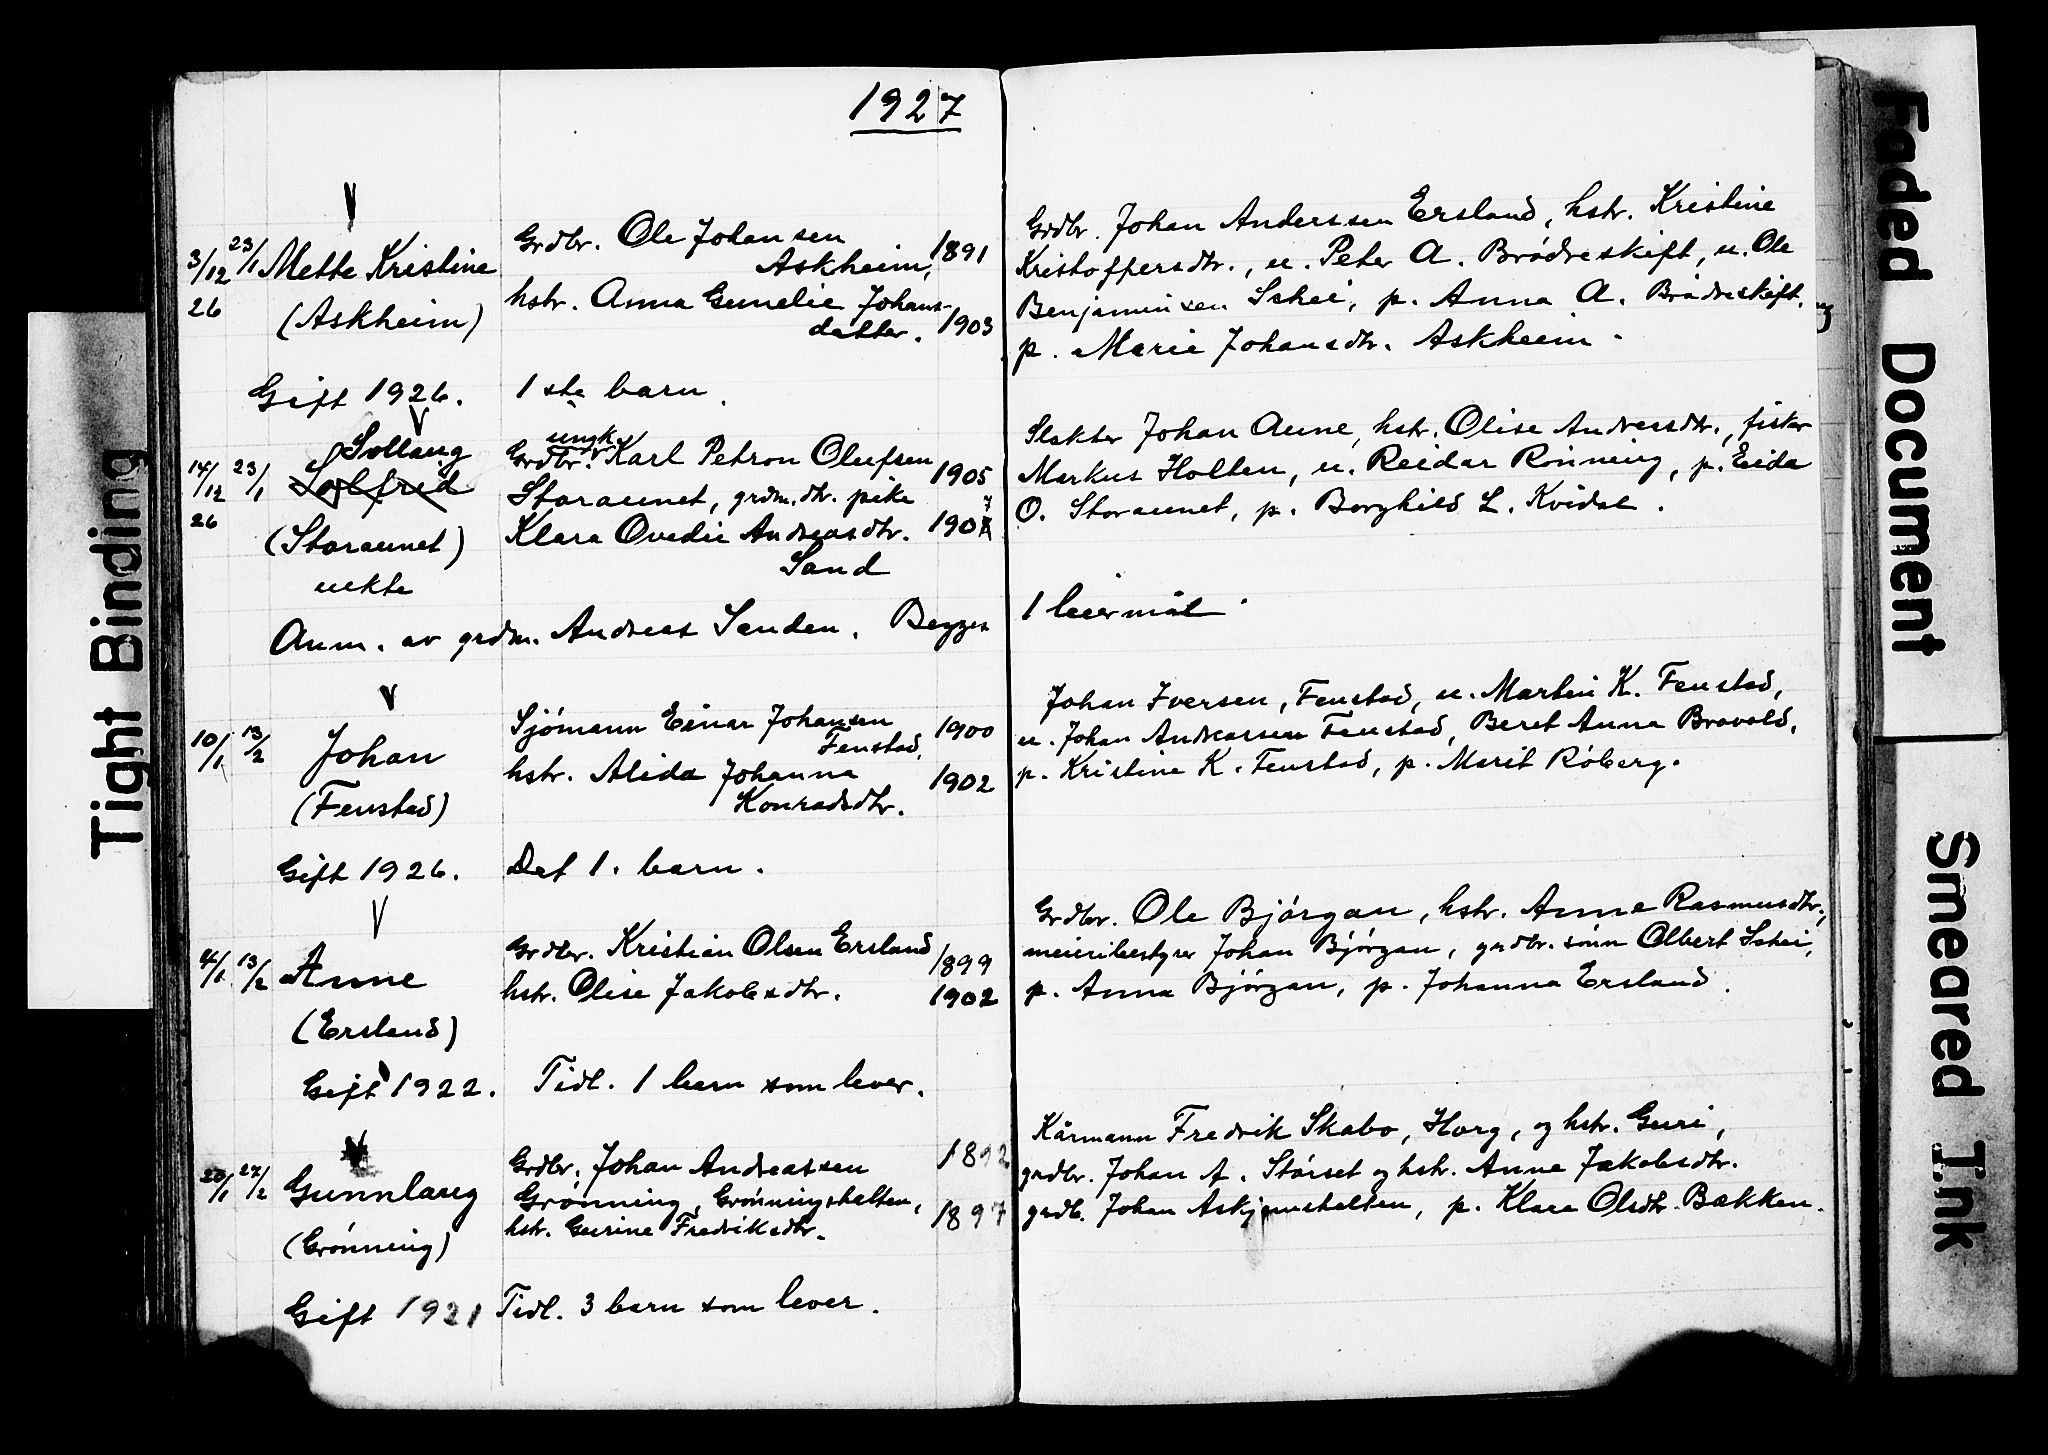 1927
3/12 26 23/1 Mette Kristine
(Askheim)
Gift 1926.
Grdbr. Ole Johansen
Askheim, 1891
hstr. Anna Gunelie Johans-
datter. 1903
1ste barn.
Grdbr. Johan Anderssen Ersland, hstr. Kristine
Kristoffersdtr., u. Peter A. Brødreskift, u. Ole
Benjaminsen Schei, p. Anna A. Brødreskift,
p. Marie Johansdtr. Askheim.
Sollaug
14/12 26 23/1 Solfrid
(Storaunet)
uekte
ungk.
Grdbr. Karl Petron Olufsen 1905
Storaunet, grdm.dtr. pike
Klara Ovedie Andreasdtr. 1907
Sand
Anm. av grdm. Andreas Sanden. Begges
Slakter Johan Aune, hstr. Olise Andreasdtr., fisker
Markus Holten, u. Reidar Rönning, p. Eida
O. Storaunet, p. Borghild L. Kvidal.
1 leiermål.
10/1 13/2 Johan
(Fenstad)
Gift 1926.
Sjömann Einar Johansen 1900
Fenstad,
hstr. Alida Johanna 1902
Konradsdtr.
Det 1. barn.
Johan Iversen, Fenstad, u. Martin K. Fenstad,
u. Johan Andreassen Fenstad, Beret Anna Bravold,
p. Kristine K. Fenstad, p. Marit Röberg.
4/1 13/2 Anne
(Ersland)
Gift 1922.
Grdbr. Kristian Olsen Ersland 1899
hstr. Olise Jakobsdtr. 1902
Tidl. 1 barn som lever.
Grdbr. Ole Björgan, hstr. Anne Rasmusdtr.,
meieribestyrer Johan Björgan, grdbr. sönn Albert Schei,
p. Anna Björgan, p. Johanna Ersland.
20/1 27/2 Gunnlaug
(Grönning)
Gift 1921
Grdbr. Johan Andreassen 1892
Grönning, Grönningshalten,
hstr. Gurine Fredriksdtr. 1897
Tidl. 3 barn som lever.
Kårmann Fredrik Skabo, Horg, og hstr. Guri,
grdbr. Johan A. Störset og hstr. Anne Jakobsdtr.
grdb. Johan Askjemshalten, p. Klara Olsdtr. Bakken.
Tight Binding
Faded Document
Smeared Ink